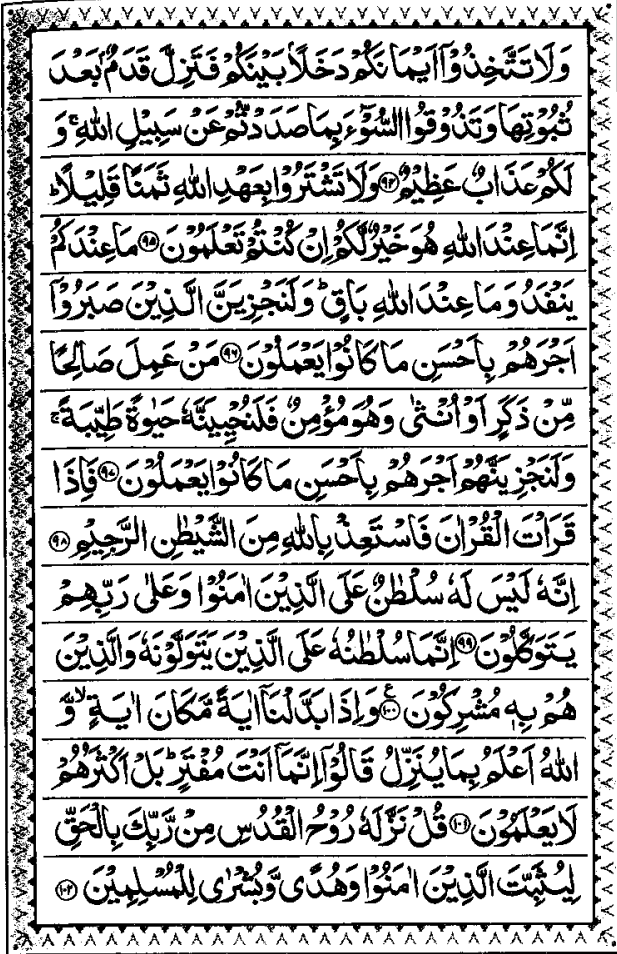 وَلَا تَتَّخِذُوْٓا اَيْمَانَكُمْ دَخَلًۢا بَيْنَكُمْ فَتَزِلَّ قَدَمٌۢ بَعْدَ
ثُبُوْتِهَا وَتَذُوْقُوا السُّوْٓءَ بِمَا صَدَدْتُّمْ عَنْ سَبِيْلِ اللّٰهِ ۚ وَ
لَكُمْ عَذَابٌ عَظِيْمٌ ﴿۹۴﴾ وَلَا تَشْتَرُوْا بِعَهْدِ اللّٰهِ ثَمَنًا قَلِيْلًا ؕ
اِنَّمَا عِنْدَ اللّٰهِ هُوَ خَيْرٌ لَّكُمْ اِنْ كُنْتُمْ تَعْلَمُوْنَ ﴿۹۵﴾ مَا عِنْدَكُمْ
يَنْفَدُ وَمَا عِنْدَ اللّٰهِ بَاقٍ ؕ وَلَنَجْزِيَنَّ الَّذِيْنَ صَبَرُوْٓا
اَجْرَهُمْ بِاَحْسَنِ مَا كَانُوْا يَعْمَلُوْنَ ﴿۹۶﴾ مَنْ عَمِلَ صَالِحًا
مِّنْ ذَكَرٍ اَوْ اُنْثٰى وَهُوَ مُؤْمِنٌ فَلَنُحْيِيَنَّهٗ حَيٰوةً طَيِّبَةً ۚ
وَلَنَجْزِيَنَّهُمْ اَجْرَهُمْ بِاَحْسَنِ مَا كَانُوْا يَعْمَلُوْنَ ﴿۹۷﴾ فَاِذَا
قَرَاْتَ الْقُرْاٰنَ فَاسْتَعِذْ بِاللّٰهِ مِنَ الشَّيْطٰنِ الرَّجِيْمِ ﴿۹۸﴾
اِنَّهٗ لَيْسَ لَهٗ سُلْطٰنٌ عَلَى الَّذِيْنَ اٰمَنُوْا وَعَلٰى رَبِّهِمْ
يَتَوَكَّلُوْنَ ﴿۹۹﴾ اِنَّمَا سُلْطٰنُهٗ عَلَى الَّذِيْنَ يَتَوَلَّوْنَهٗ وَالَّذِيْنَ
هُمْ بِهٖ مُشْرِكُوْنَ ﴿۱۰۰﴾ ع وَاِذَا بَدَّلْنَآ اٰيَةً مَّكَانَ اٰيَةٍ ۙ وَّ
اللّٰهُ اَعْلَمُ بِمَا يُنَزِّلُ قَالُوْٓا اِنَّمَآ اَنْتَ مُفْتَرٍ ؕ بَلْ اَكْثَرُهُمْ
لَا يَعْلَمُوْنَ ﴿۱۰۱﴾ قُلْ نَزَّلَهٗ رُوْحُ الْقُدُسِ مِنْ رَّبِّكَ بِالْحَقِّ
لِيُثَبِّتَ الَّذِيْنَ اٰمَنُوْا وَهُدًى وَّبُشْرٰى لِلْمُسْلِمِيْنَ ﴿۱۰۲﴾